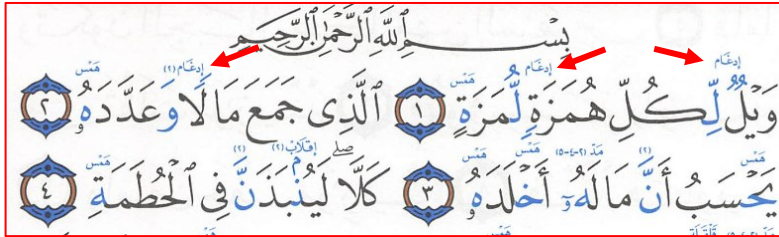 بِسْمِ اللَّهِ الرَّحْمَٰنِ الرَّحِيمِ
إدغام إدغام همس إدغام (٢) همس
وَيْلٌ لِّكُلِّ هُمَزَةٍ لُّمَزَةٍ ١ الَّذِى جَمَعَ مَالًا وَعَدَّدَهُۥ ٢
همس (٢) مد (٢-٤-٥) همس همس صلے إقلاب (٢) (٢) همس
يَحْسَبُ أَنَّ مَالَهُۥٓ أَخْلَدَهُۥ ٣ كَلَّا لَيُنۢبَذَنَّ فِى الْحُطَمَةِ ٤